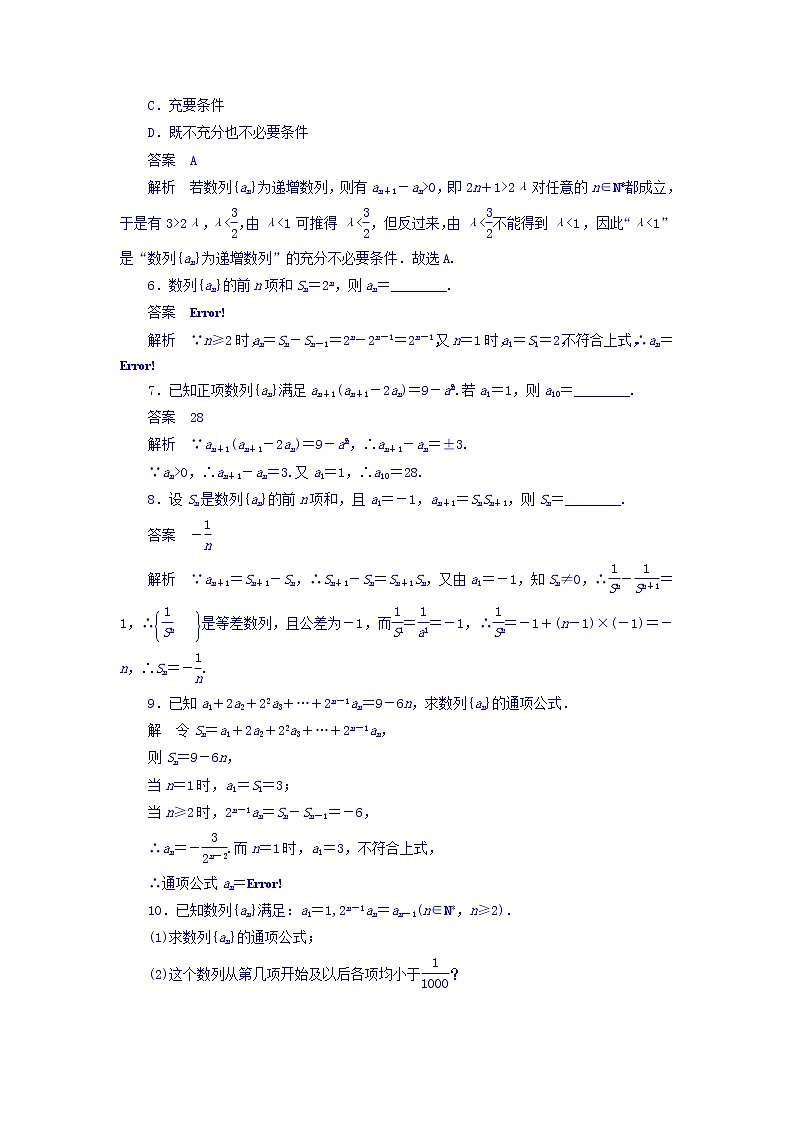 C．充要条件
D．既不充分也不必要条件
答案　A
解析　若数列{aₙ}为递增数列,则有 aₙ₊₁－aₙ>0,即 2n＋1>2λ对任意的 n∈N*都成立,
于是有 3>2λ, λ<3/2,由 λ<1 可推得 λ<3/2, 但反过来,由 λ<3/2不能得到 λ<1, 因此“λ<1”
是“数列{aₙ}为递增数列”的充分不必要条件．故选A.
6．数列{aₙ}的前n项和 Sₙ＝2ⁿ, 则 aₙ＝________.
答案　Error!
解析　∵n≥2时,aₙ＝Sₙ－Sₙ₋₁＝2ⁿ－2ⁿ⁻¹＝2ⁿ⁻¹,又 n＝1时,a₁＝S₁＝2,不符合上式,∴aₙ＝
Error!
7．已知正项数列{aₙ}满足 aₙ₊₁(aₙ₊₁－2aₙ)＝9－a²ₙ.若 a₁＝1, 则 a₁₀＝________.
答案　28
解析　∵aₙ₊₁(aₙ₊₁－2aₙ)＝9－a²ₙ, ∴aₙ₊₁－aₙ＝±3.
∵aₙ>0, ∴aₙ₊₁－aₙ＝3.又 a₁＝1, ∴a₁₀＝28.
8．设 Sₙ是数列{aₙ}的前n项和, 且 a₁＝－1, aₙ₊₁＝SₙSₙ₊₁, 则 Sₙ＝________.
答案　－1/n
解析　∵aₙ₊₁＝Sₙ₊₁－Sₙ, ∴Sₙ₊₁－Sₙ＝Sₙ₊₁Sₙ, 又由 a₁＝－1, 知 Sₙ≠0, ∴1/Sₙ－1/Sₙ₊₁＝
1, ∴{1/Sₙ}是等差数列, 且公差为－1, 而1/S₁＝1/a₁＝－1, ∴1/Sₙ＝－1＋(n－1)×(－1)＝－
n, ∴Sₙ＝－1/n.
9．已知 a₁＋2a₂＋2²a₃＋…＋2ⁿ⁻¹aₙ＝9－6n, 求数列{aₙ}的通项公式．
解　令 Sₙ＝a₁＋2a₂＋2²a₃＋…＋2ⁿ⁻¹aₙ,
则 Sₙ＝9－6n,
当 n＝1时, a₁＝S₁＝3;
当 n≥2时, 2ⁿ⁻¹aₙ＝Sₙ－Sₙ₋₁＝－6,
∴aₙ＝－3/2ⁿ⁻².而 n＝1时, a₁＝3, 不符合上式,
∴通项公式 aₙ＝Error!
10．已知数列{aₙ}满足: a₁＝1,2ⁿ⁻¹aₙ＝aₙ₋₁(n∈N*, n≥2).
(1)求数列{aₙ}的通项公式;
(2)这个数列从第几项开始及以后各项均小于1/1000?